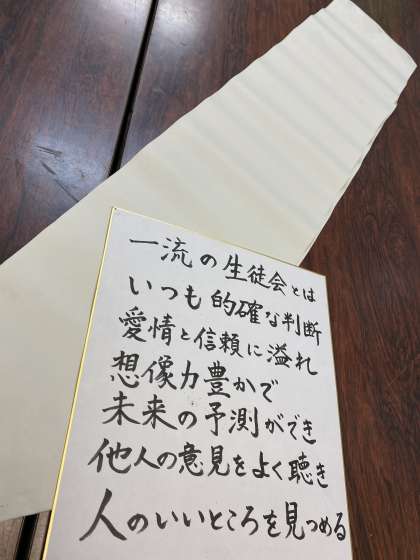 一流の生徒会とは
いつも的確な判断
愛情と信頼に溢れ
想像力豊かで
未来の予測ができ
他人の意見をよく聴き
人のいいところを見つめる